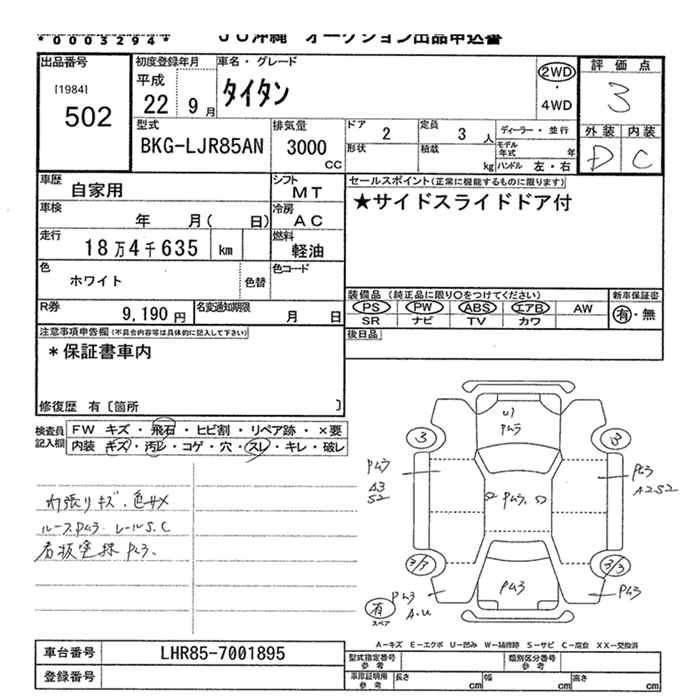 *0003294*
JU沖縄 オークション出品申込書
出品番号
[1984]
502
初度登録年月
平成
22年 9月
車名・グレード
タイタン
2WD
・
4WD
評価点
3
外装 内装
D C
型式
BKG-LJR85AN
排気量
3000
CC
ドア 2
定員 3 人
ディーラー・並行
形状
積載
kg
モデル年式 年
ハンドル 左・右
車歴
自家用
シフト
MT
車検
年 月( 日)
冷房
AC
走行
18万4千635 km
燃料
軽油
色
ホワイト
色替
色コード
R券
9,190円
名変通知期限
月 日
セールスポイント(正常に機能するものに限ります)
★サイドスライドドア付
装備品 (純正品に限り○をつけてください)
新車保証書
PS PW ABS エアB AW
SR ナビ TV カワ
有・無
後日品
注意事項申告欄(不具合内容等は具体的に記入して下さい)
*保証書車内
修復歴 有〔箇所 〕
検査員記入欄
FW キズ・飛石・ヒビ割・リペア跡・×要
内装 キズ・汚レ・コゲ・穴・スレ・キレ・破レ
内張りキズ.色サメ
ルーフPム3 レールS.C
看板塗抹 Pム3.
U1
Pム3
3
3
Pム3
A3
S2
Pム3
A2S2
Pム3.
3/3
3/3
Pム3
A.U
Pム3
Pム3
有
スペア
A-キズ E-エクボ U-凹み W-補修跡 S-サビ C-腐食 XX-交換済
車台番号
LHR85-7001895
登録番号
型式指定番号
参考
類別区分番号
参考
車庫証明用
参考
長さ cm
幅 cm
高さ cm